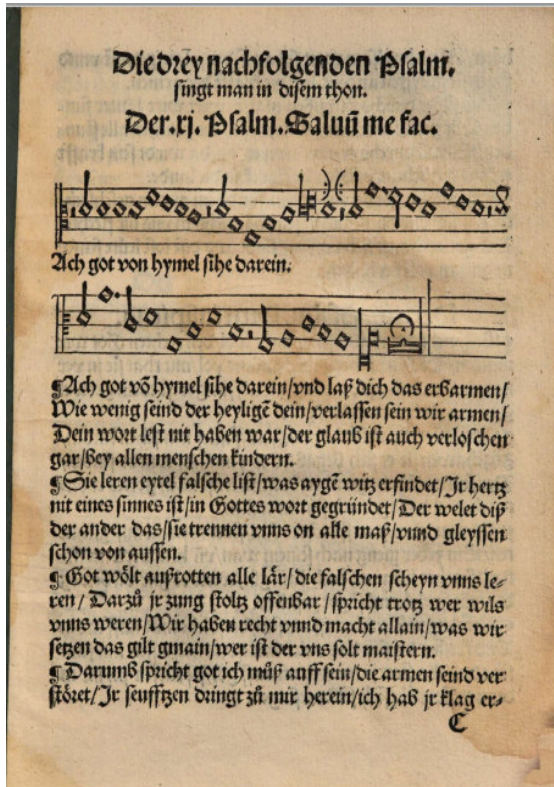 Die drey nachfolgenden Psalm.
singt man in disem thon.
Der.xj. Psalm. Saluū me fac.
Ach got von hymel sihe darein.
¶Ach got vō hymel sihe darein/vnd laß dich das erbarmen/
Wie wenig seind der heyligē dein/verlassen sein wir armen/
Dein wort lest nit haben war/der glaub ist auch verloschen
gar/bey allen menschen kindern.
¶Sie leren eytel falsche list/was aygē witz erfindet/Jr hertz
nit eines sinnes ist/in Gottes wort gegründet/Der welet diß
der ander das/sie trennen vnns on alle maß/vnnd gleyssen
schon von aussen.
¶Got wölt außrotten alle lär/die falschen scheyn vnns le-
ren/Darzů jr zung stoltz offenbar/spricht trotz wer wils
vnns weren/Wir haben recht vnnd macht allain/was wir
setzen das gilt gmain/wer ist der vns solt maistern.
¶Darumb spricht got ich můß auff sein/die armen seind ver
störet/Jr seufftzen dringt zů mir herein/ich hab jr klag er-
C